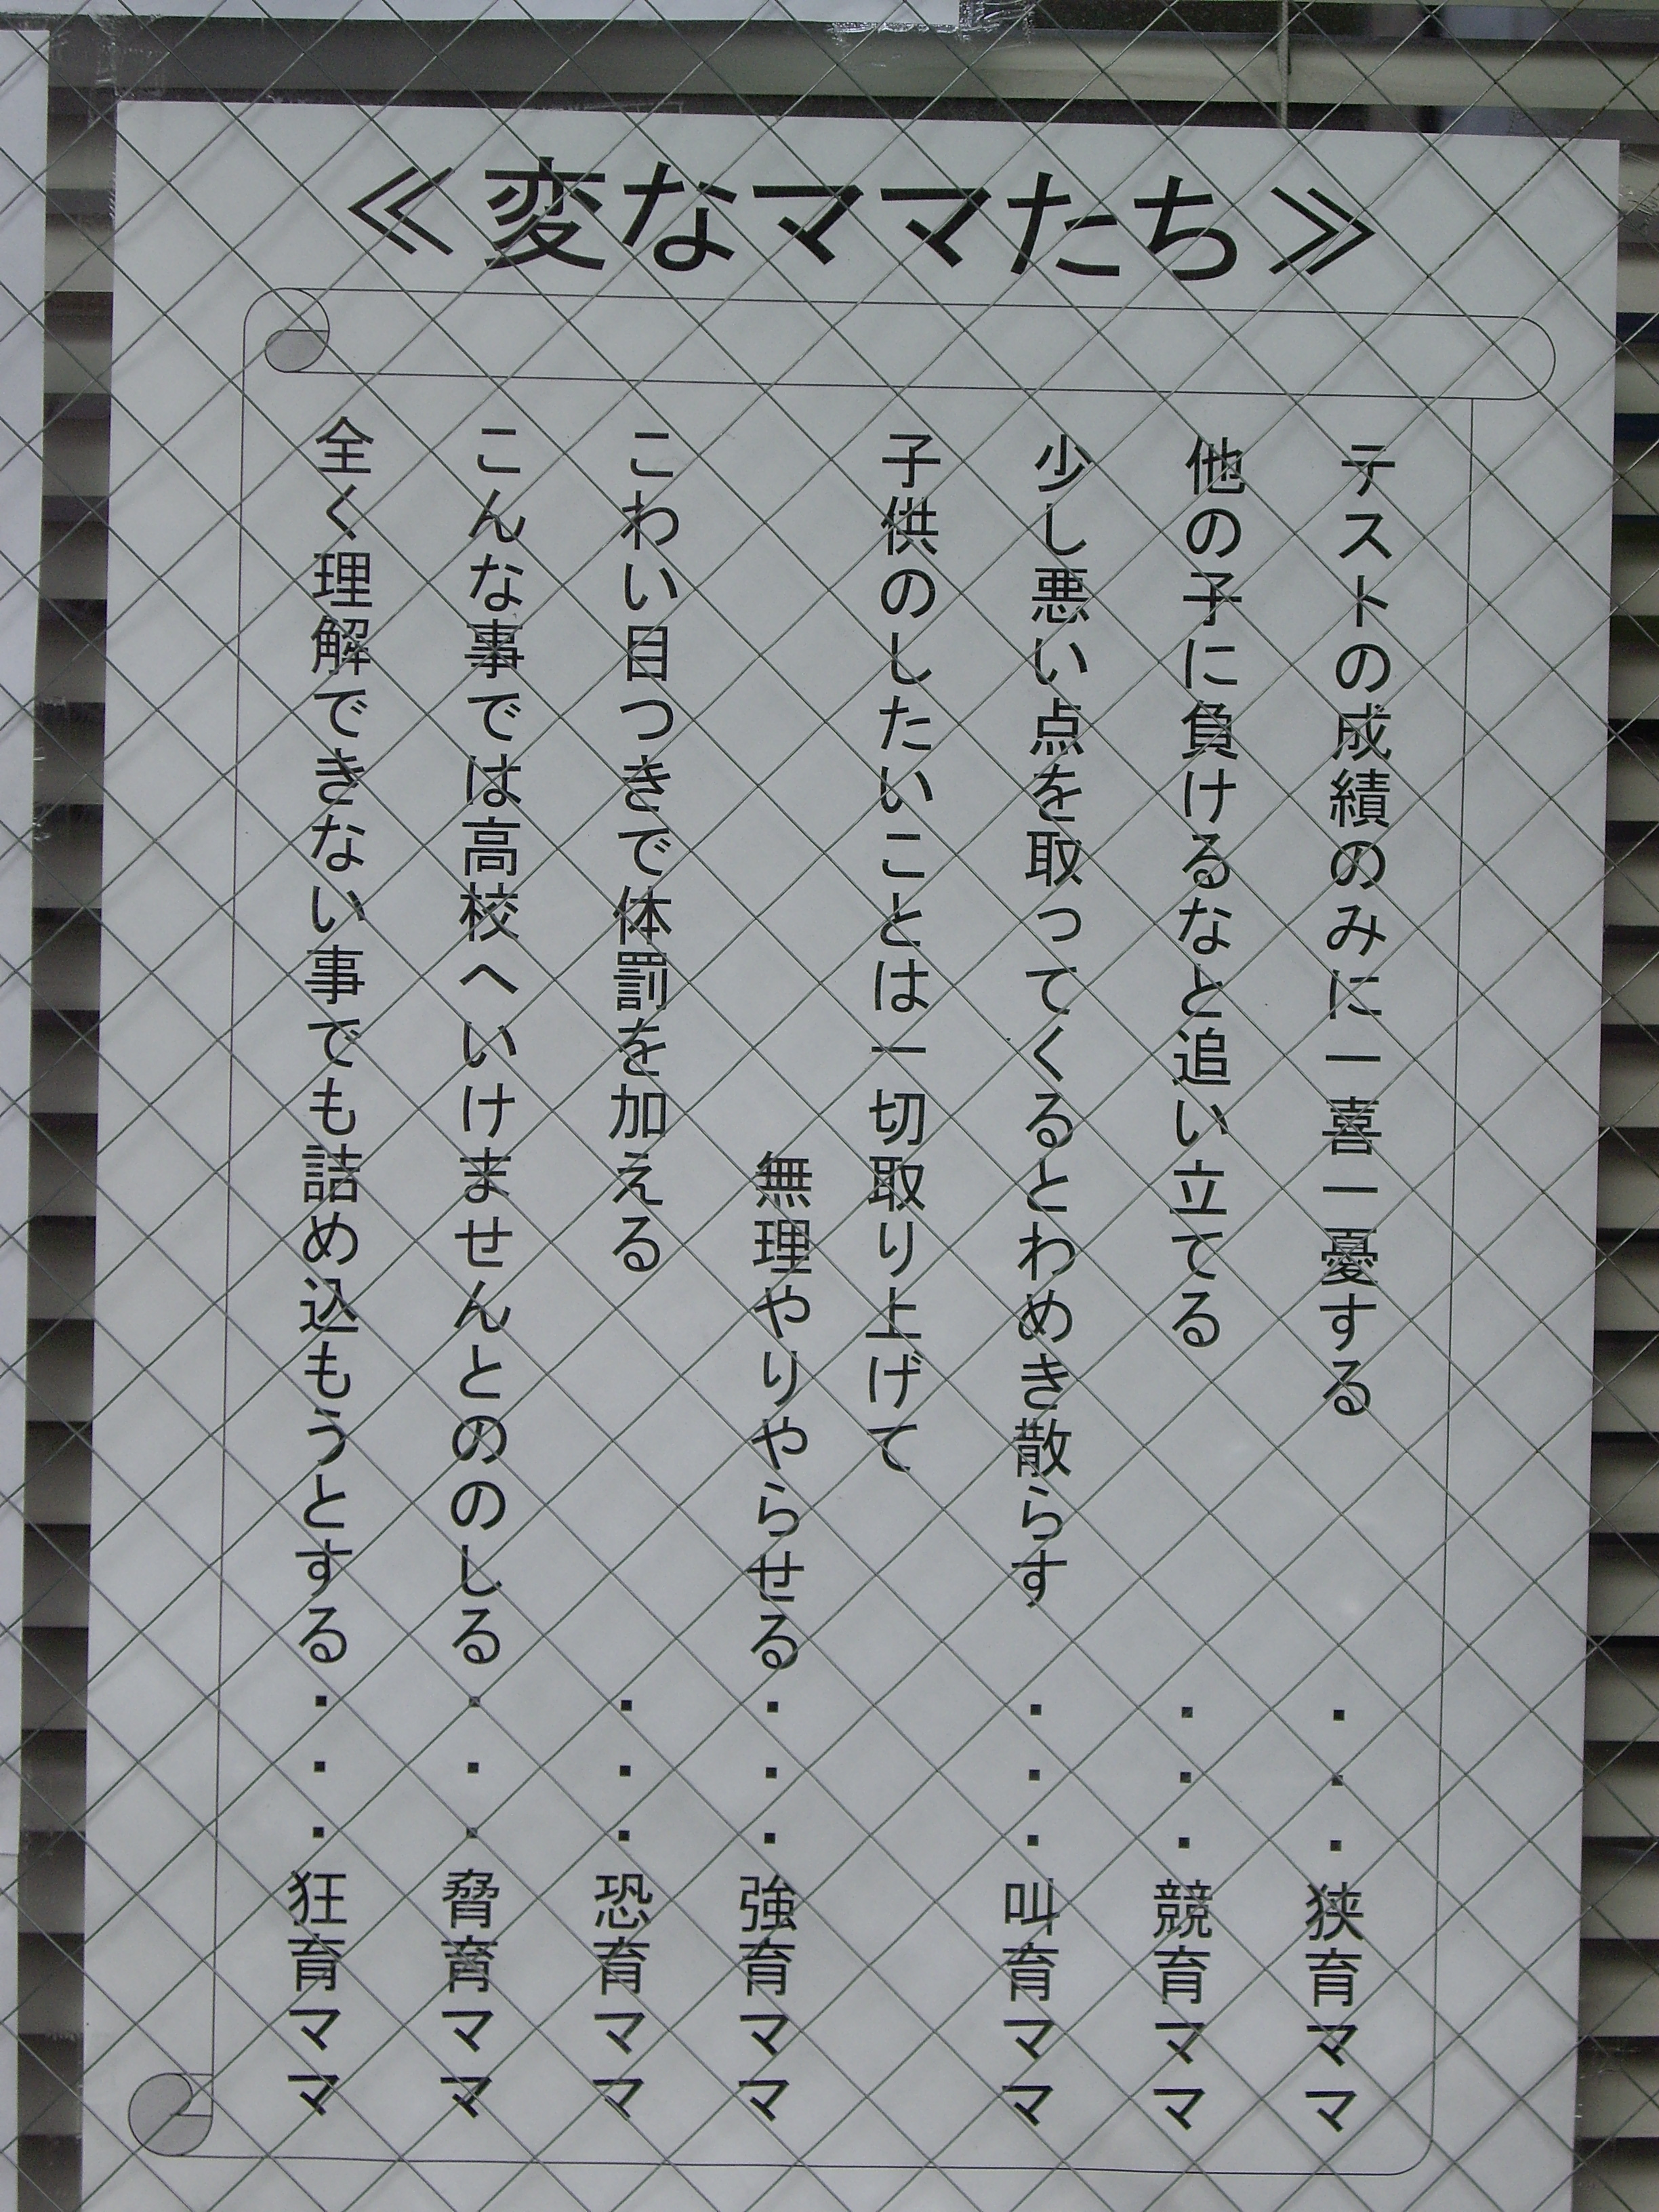 ≪変なママたち≫
テストの成績のみに一喜一憂する・・・狭育ママ
他の子に負けるなと追い立てる・・・競育ママ
少し悪い点を取ってくるとわめき散らす・・・叫育ママ
子供のしたいことは一切取り上げて
無理やりやらせる・・・強育ママ
こわい目つきで体罰を加える・・・恐育ママ
こんな事では高校へいけませんとののしる・・・脅育ママ
全く理解できない事でも詰め込もうとする・・・狂育ママ